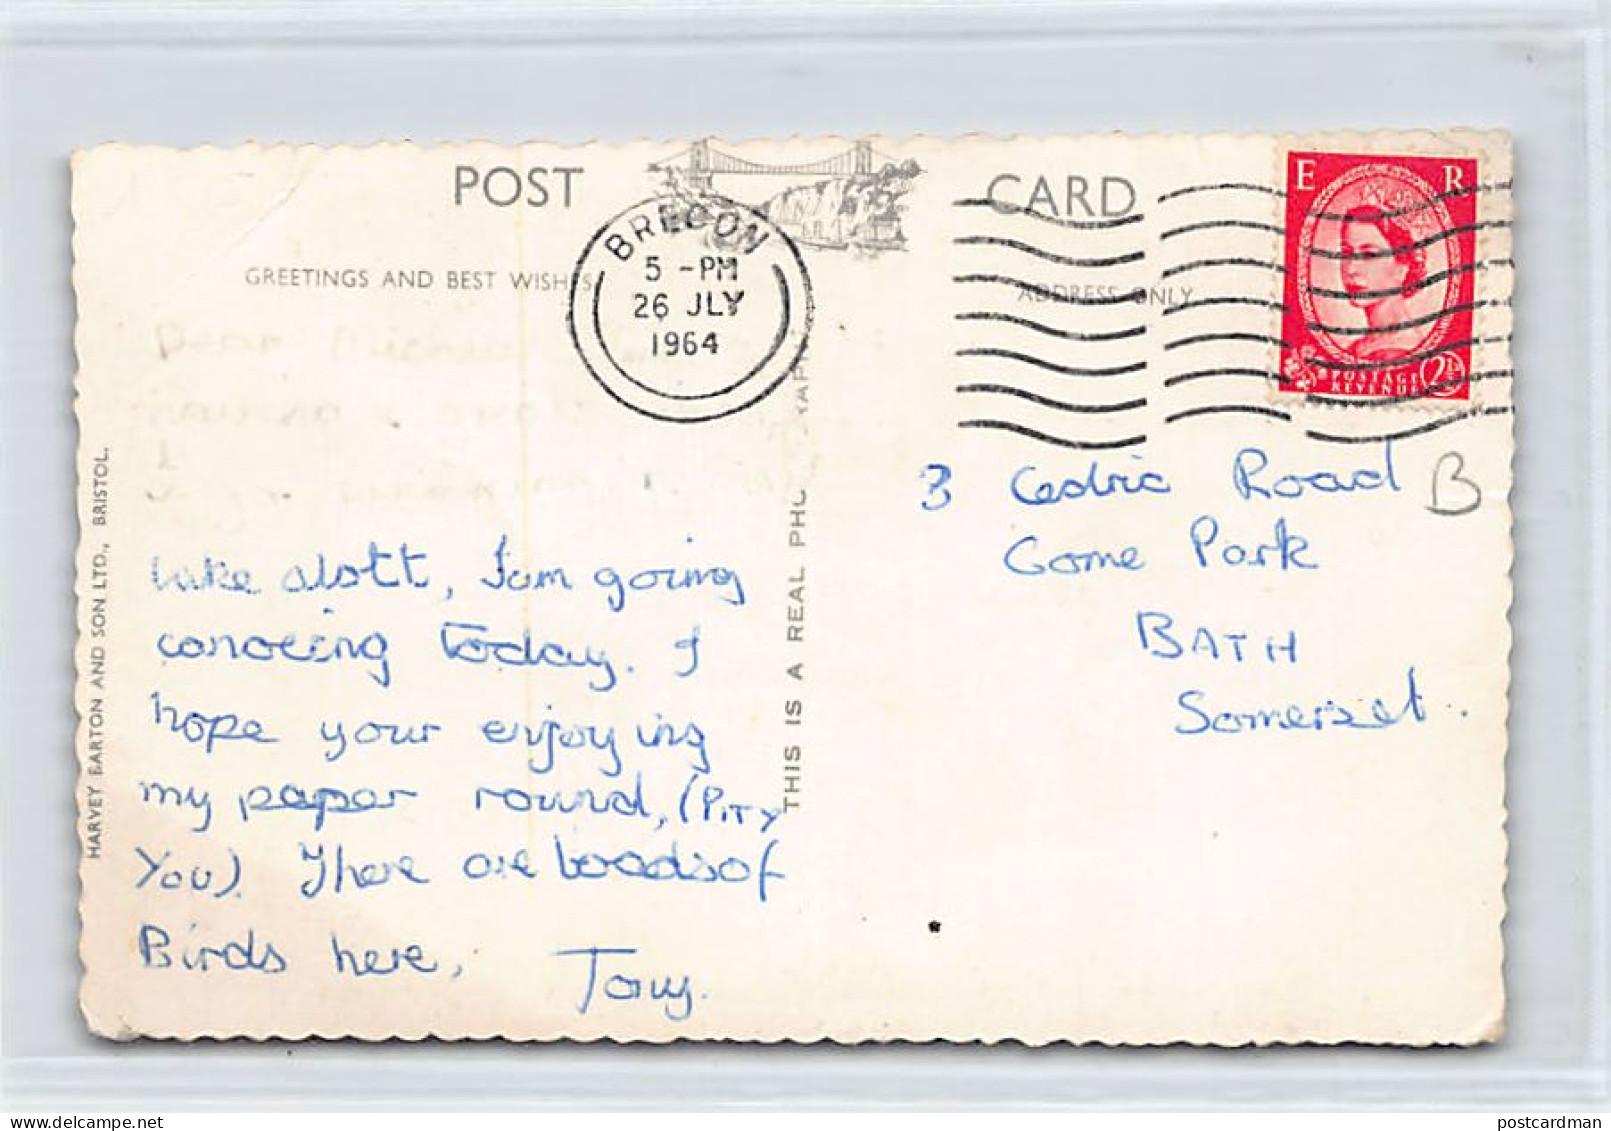 POST CARD
BRECON
5 - PM
26 JLY
1964
E R
POSTAGE
REVENUE
2½D
GREETINGS AND BEST WISHES
ADDRESS ONLY
HARVEY BARTON AND SON LTD., BRISTOL.
THIS IS A REAL
alott, I am going
canoeing today. I
hope your enjoying
my paper round, (PITY
YOU). There are loadsof
Birds here,
Tony.
3 Cedric Road
Come Park
BATH
Somerset.
B
postcardman